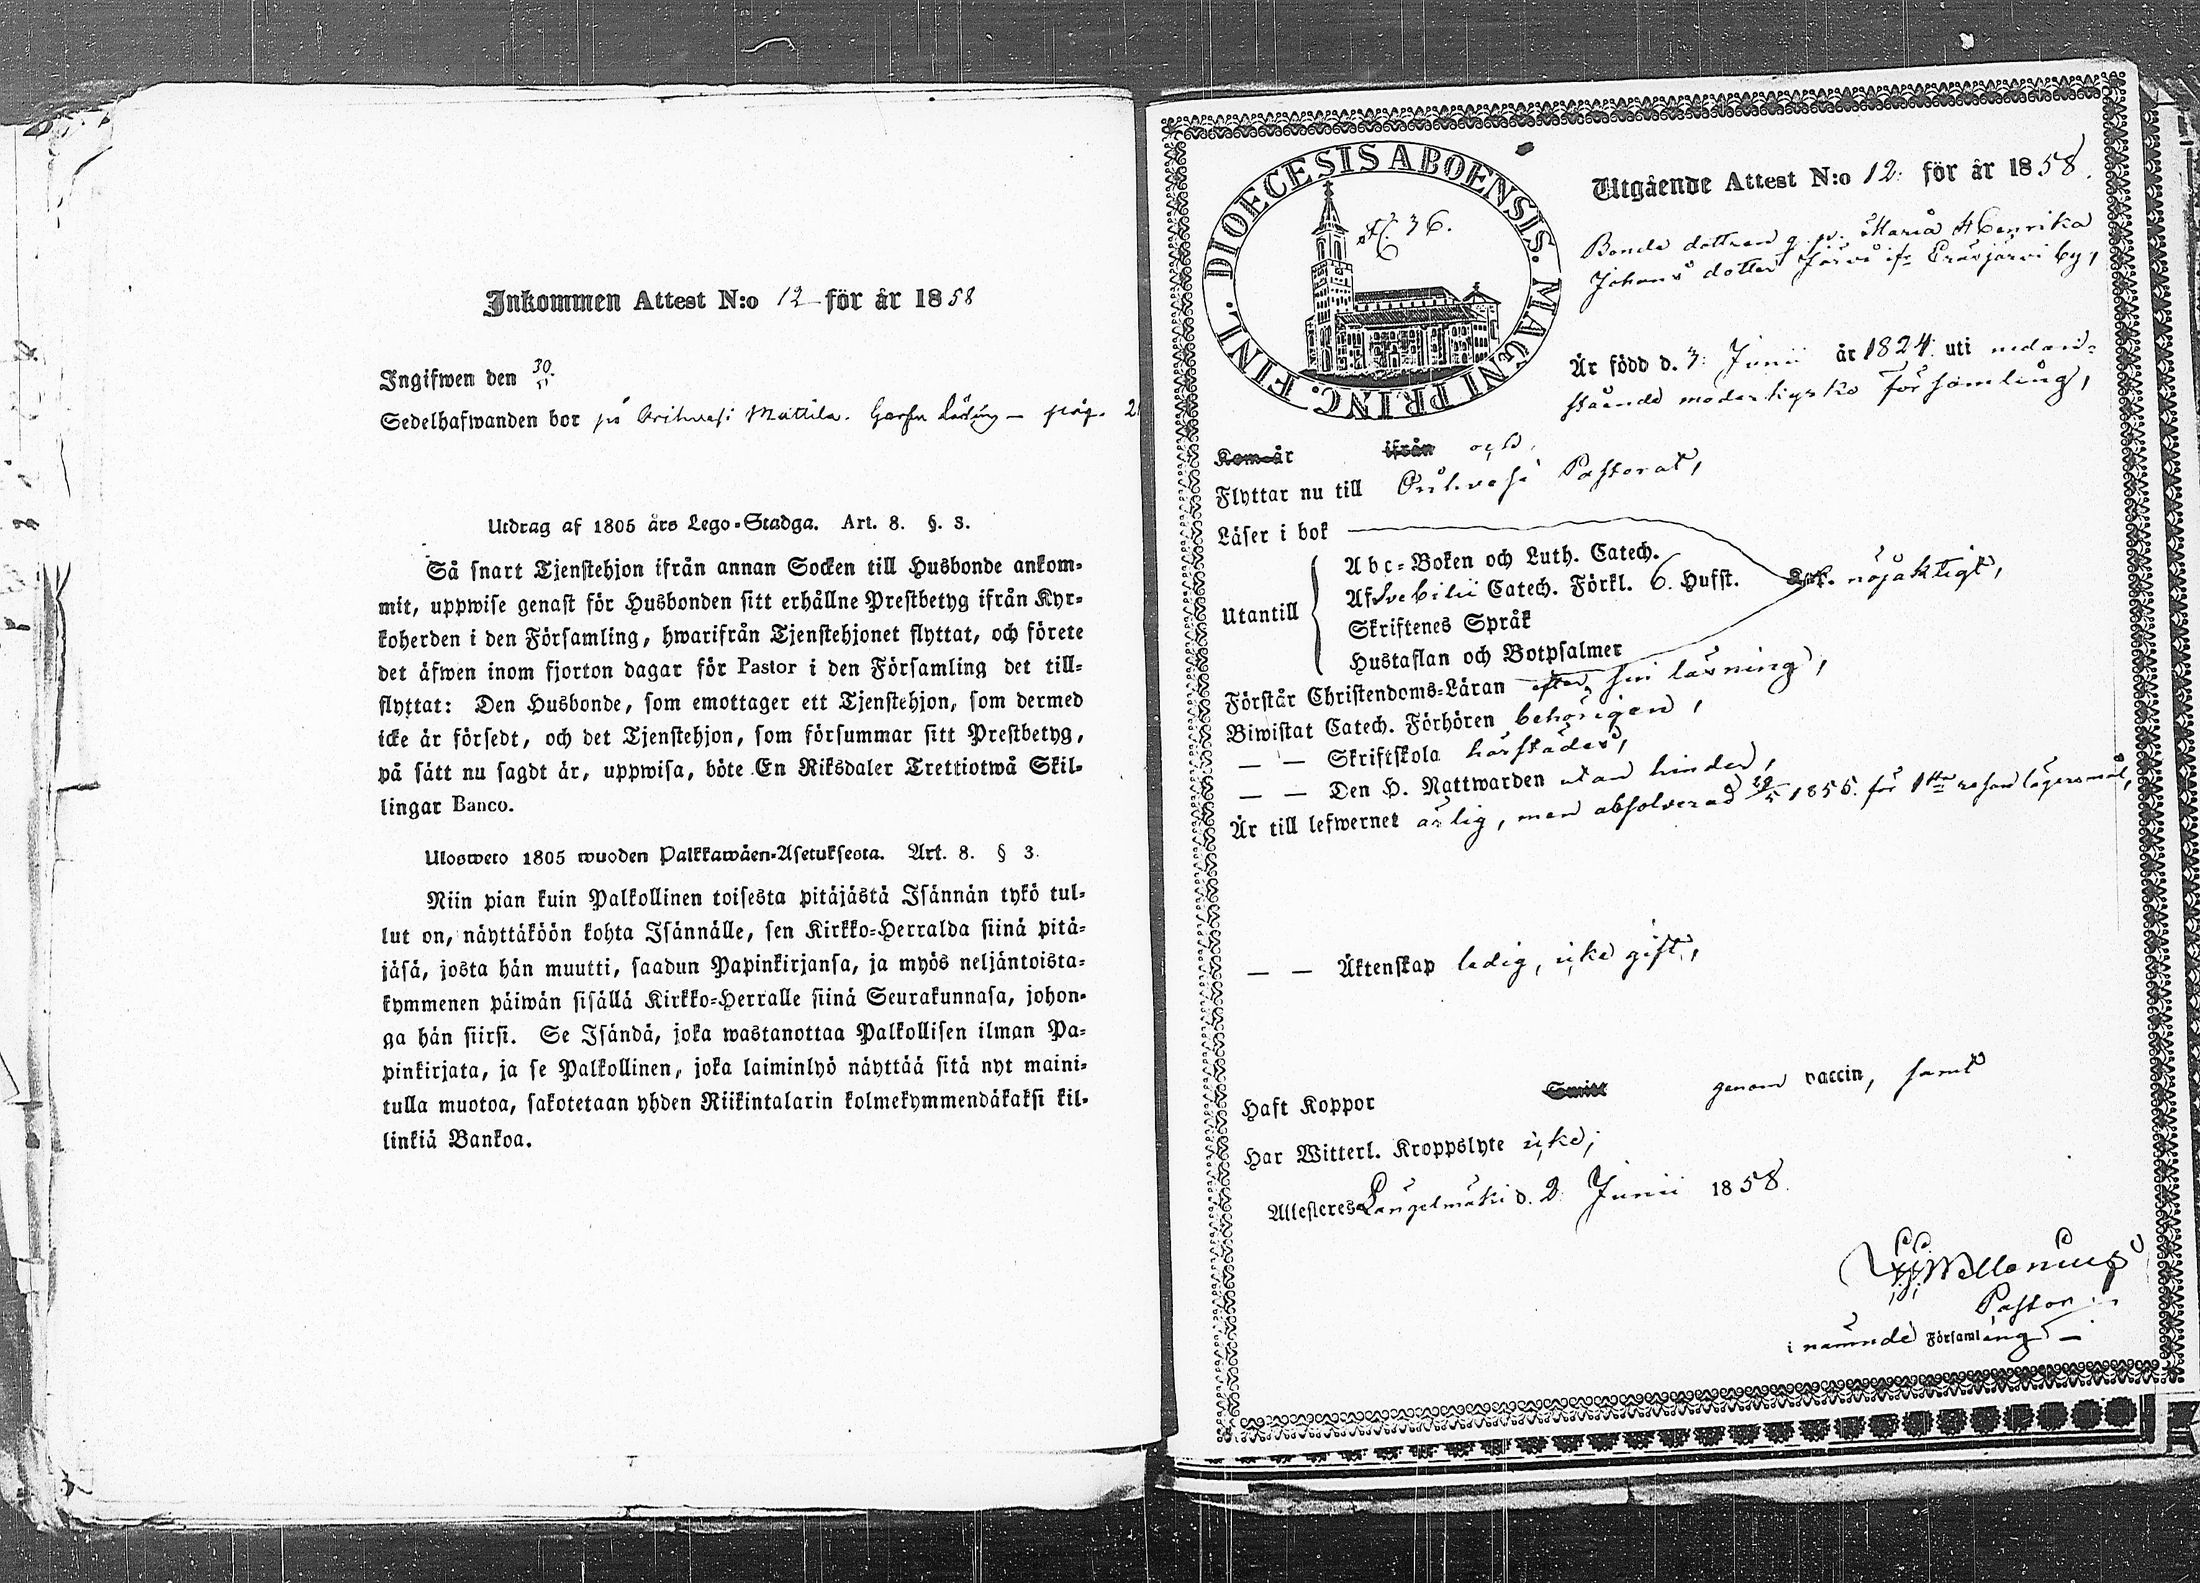 Inkommen Attest N:o 12 för år 1858
Ingifwen den 30
Sedelhafwanden bor på Orihvesi Mattila.
Utdrag af 1805 års Lego-Stadga. Art. 8. §. 3.
Så snart Tjenstehjon ifrån annan Socken till Husbonde ankom-
mit, uppwise genast för Husbonden sitt erhållne Prestbetyg ifrån Kyr-
koherden i den Församling, hwarifrån Tjenstehjonet flyttat, och förete
det äfwen inom fjorton dagar för Pastor i den Församling det till-
flyttat: Den Husbonde, som emottager ett Tjenstehjon, som dermed
icke är försedt, och det Tjenstehjon, som försummar sitt Prestbetyg,
på sätt nu sagdt är, uppwisa, böte En Riksdaler Trettiotwå Skil-
lingar Banco.
Ulosweto 1805 wuoden Palkkawäen-Asetuksesta. Art. 8. § 3.
Niin pian kuin Palkollinen toisesta pitäjästä Isännän tykö tul-
lut on, näyttäköön kohta Isännälle, sen Kirkko-Herralda siinä pitä-
jäsä, josta hän muutti, saadun Papinkirjansa, ja myös neljäntoista-
kymmenen päiwän sisällä Kirkko-Herralle siinä Seurakunnasa, johon-
ga hän siirsi. Se Isändä, joka wastanottaa Palkollisen ilman Pa-
pinkirjata, ja se Palkollinen, joka laiminlyö näyttää sitä nyt maini-
tulla muotoa, sakotetaan yhden Riikintalarin kolmekymmendäkaksi kil-
linkiä Bankoa.
DIOECESIS ABOENSIS. MAGNI PRINC. FINL.
36.
Utgående Attest N:o 12. för år 1858.
Bonde dottren q. p. Maria Henrika
Johans dotter Järvi ifr Eräjärvi by,
Är född d. 3. Junii år 1824. uti nedan-
stående moderkyrko församling,
Kom år ifrån och
Flyttar nu till Orihvesi Pastorat,
Läser i bok
Utantill
Abc-Boken och Luth. Catech.
Af Svebilii Catech. Förkl. 6. Hufst. nöjaktigt,
Skriftenes Språk
Hustaflan och Botpsalmer
Förstår Christendoms-Läran efter sin läsning,
Biwistat Catech. Förhören behörigen,
— — Skriftskola härstädes,
— — Den H. Nattwarden utan hinder,
Är till lefwernet ärlig, men absolverad 1855. för 1sta resan lägersmål,
— — Äktenskap ledig, icke gift,
Haft Koppor genom vaccin, samt
Har Witterl. Kroppslyte icke;
Attesteres Längelmäki d. 2. Junii 1858.
Wallenius
Pastor
i nämnde Församling